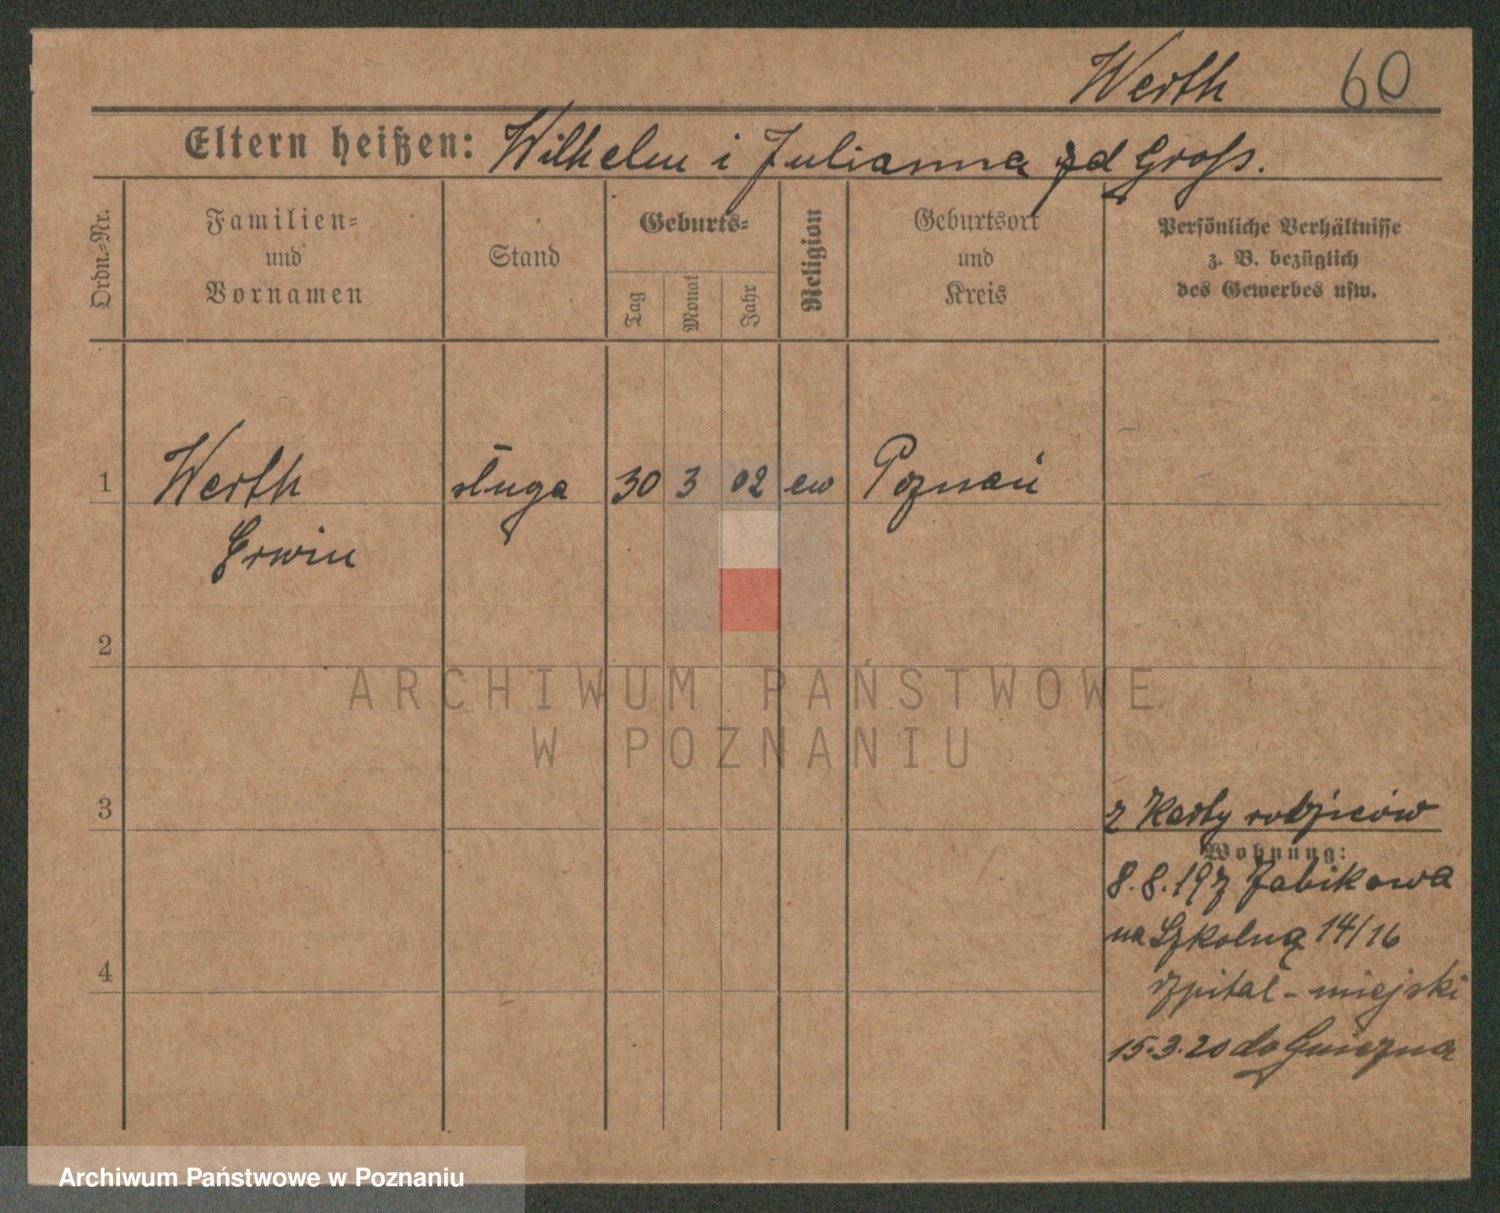 Werth 60
Eltern heißen: Wilhelm i Julianna zd Gross.
Ordn.-Nr.
Familien- und Vornamen
Stand
Geburts-
Tag
Monat
Jahr
Religion
Geburtsort und Kreis
Persönliche Verhältnisse
z. B. bezüglich
des Gewerbes usw.
1 Werth sługa 30 3 02 ew Poznań
Erwin
2
ARCHIWUM PAŃSTWOWE
W POZNANIU
3 z Karty rodziców
Wohnung:
8.8.19 z Żabikowa
na Szkolną 14/16
4 szpital - miejski
15.3.20 do Gniezna
Archiwum Państwowe w Poznaniu